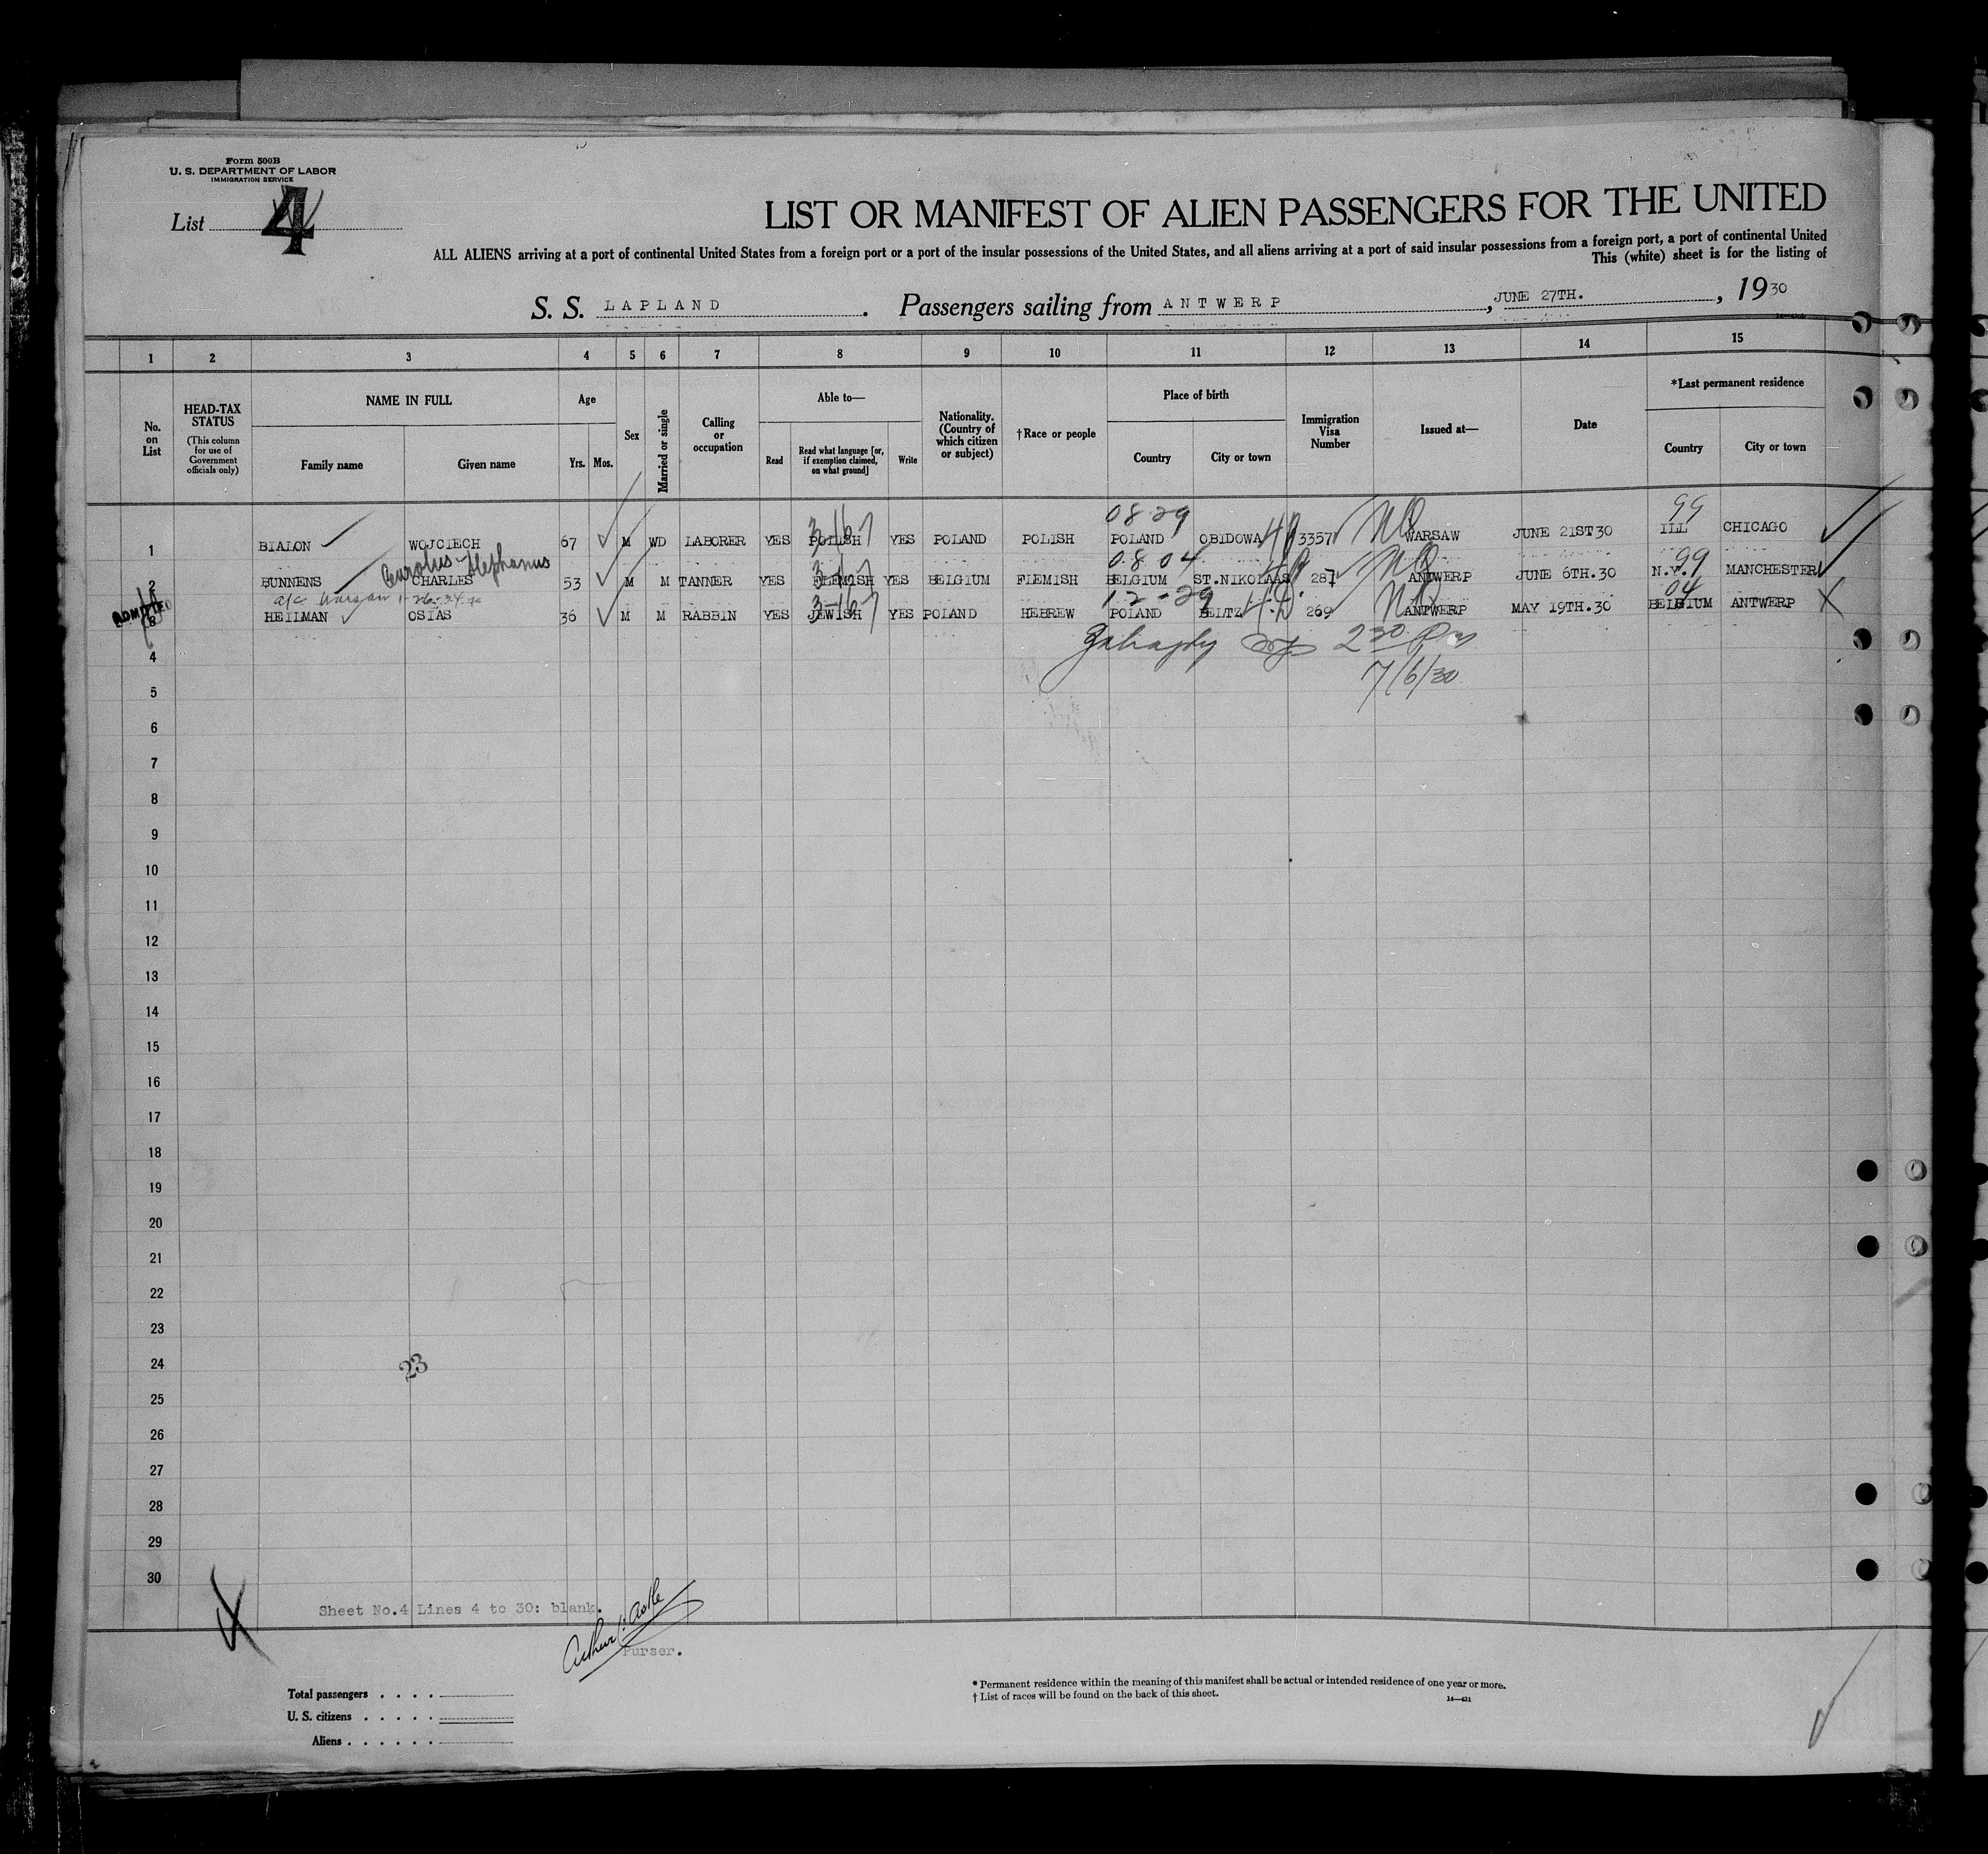 Form 500B
U. S. DEPARTMENT OF LABOR
IMMIGRATION SERVICE
List 4
LIST OR MANIFEST OF ALIEN PASSENGERS FOR THE UNITED
ALL ALIENS arriving at a port of continental United States from a foreign port or a port of the insular possessions of the United States, and all aliens arriving at a port of said insular possessions from a foreign port, a port of continental United
This (white) sheet is for the listing of
S. S. LAPLAND. Passengers sailing from ANTWERP, JUNE 27TH., 1930
1 2 3 4 5 6 7 8 9 10 11 12 13 14 15
No. on List
HEAD-TAX STATUS
(This column for use of Government officials only)
NAME IN FULL
Family name
Given name
Age
Yrs. Mos.
Sex
Married or single
Calling or occupation
Able to—
Read
Read what language [or, if exemption claimed, on what ground]
Write
Nationality. (Country of which citizen or subject)
†Race or people
Place of birth
Country
City or town
Immigration Visa Number
Issued at—
Date
*Last permanent residence
Country
City or town
08-29 99
1 BIALON WOJCIECH 67 M WD LABORER YES POLISH YES POLAND POLISH POLAND OBIDOWA 3357 WARSAW JUNE 21ST30 ILL CHICAGO
Carolus-Stephanus 0.8 04 99
2 BUNNENS CHARLES 53 M M TANNER YES FLEMISH YES BELGIUM FLEMISH BELGIUM ST.NIKOLAAS 287 ANTWERP JUNE 6TH.30 N.Y. MANCHESTER
a/c Warsaw 1-26-34 12-29 04
ADMITTED
3 HEILMAN OSIAS 36 M M RABBIN YES JEWISH YES POLAND HEBREW POLAND BELTZ 269 ANTWERP MAY 19TH.30 BELGIUM ANTWERP
2 30 Pm
7/6/30
4
5
6
7
8
9
10
11
12
13
14
15
16
17
18
19
20
21
22
23
24
23
25
26
27
28
29
30
Sheet No.4 Lines 4 to 30: blank.
Purser.
Total passengers
U. S. citizens
Aliens
* Permanent residence within the meaning of this manifest shall be actual or intended residence of one year or more.
† List of races will be found on the back of this sheet.
14—431